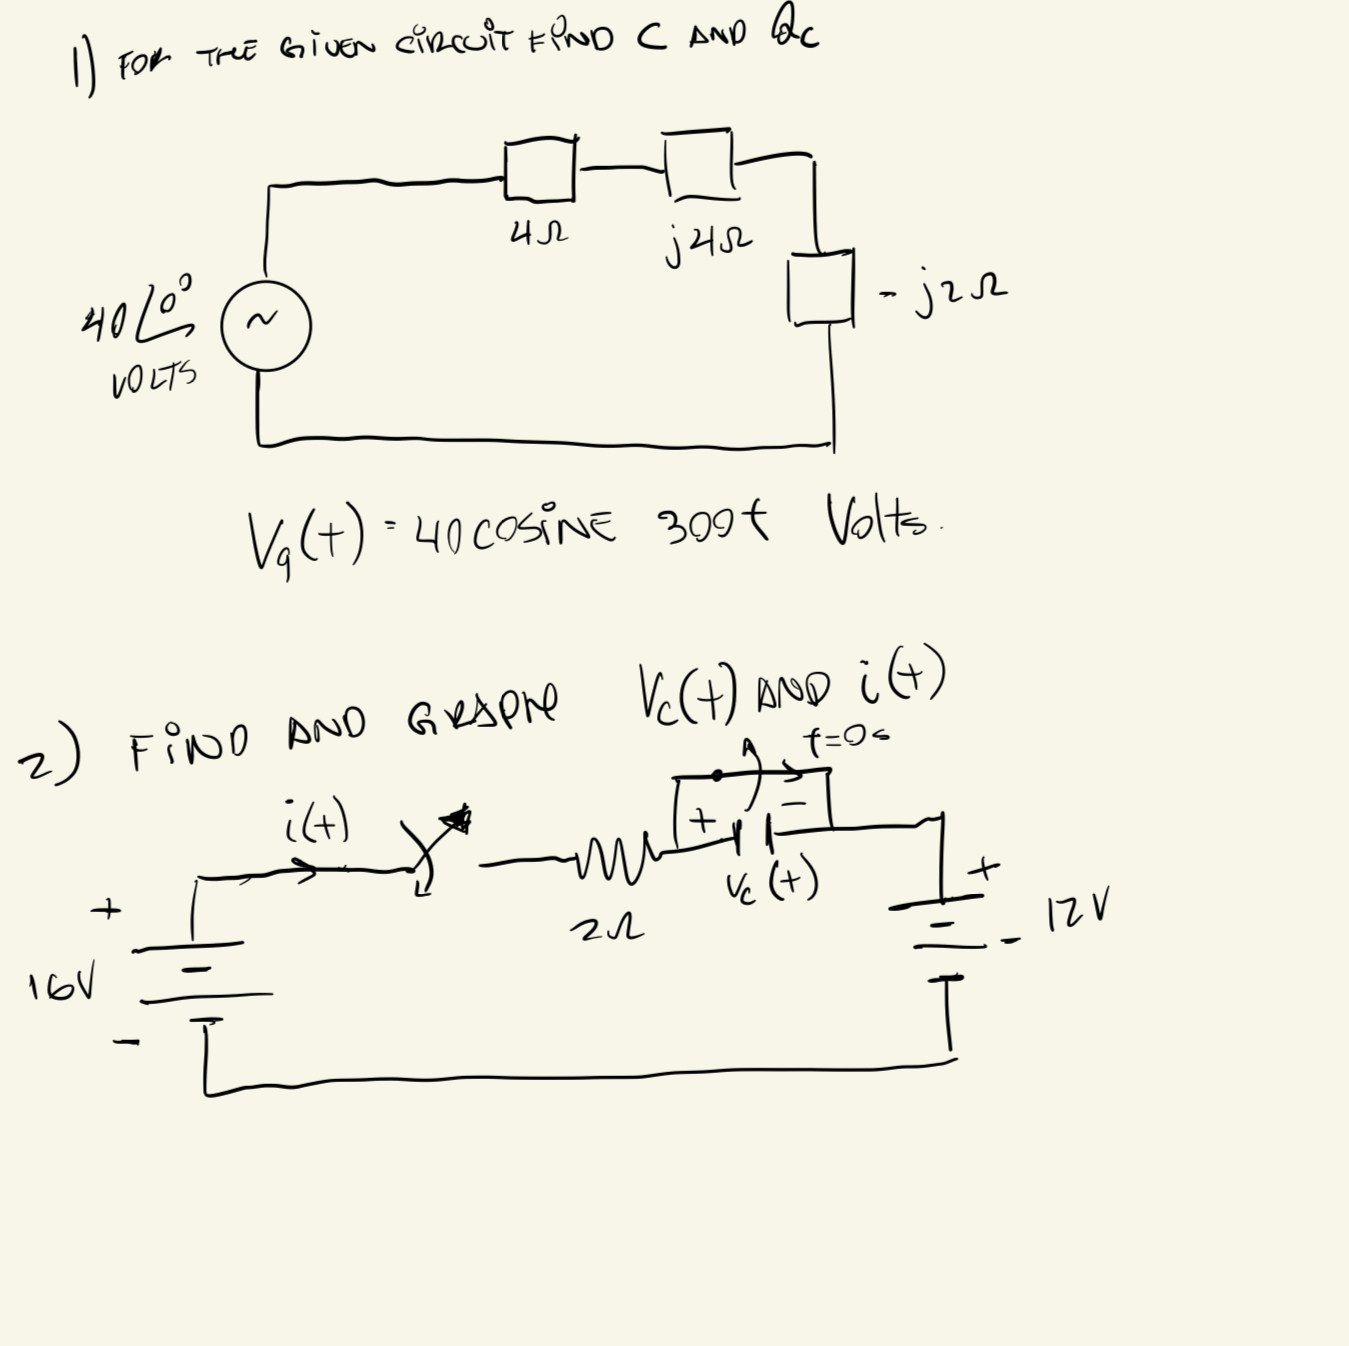 1) FOR THE GIVEN CIRCUIT FIND C AND Qc
4Ω
j4Ω
- j2Ω
40∠0°
VOLTS
Vg(t) = 40 COSINE 300t Volts.
2) FIND AND GRAPH Vc(t) AND i(t)
t=0s
i(t)
+ -
Vc(t)
2Ω
+
16V
-
+
12V
-